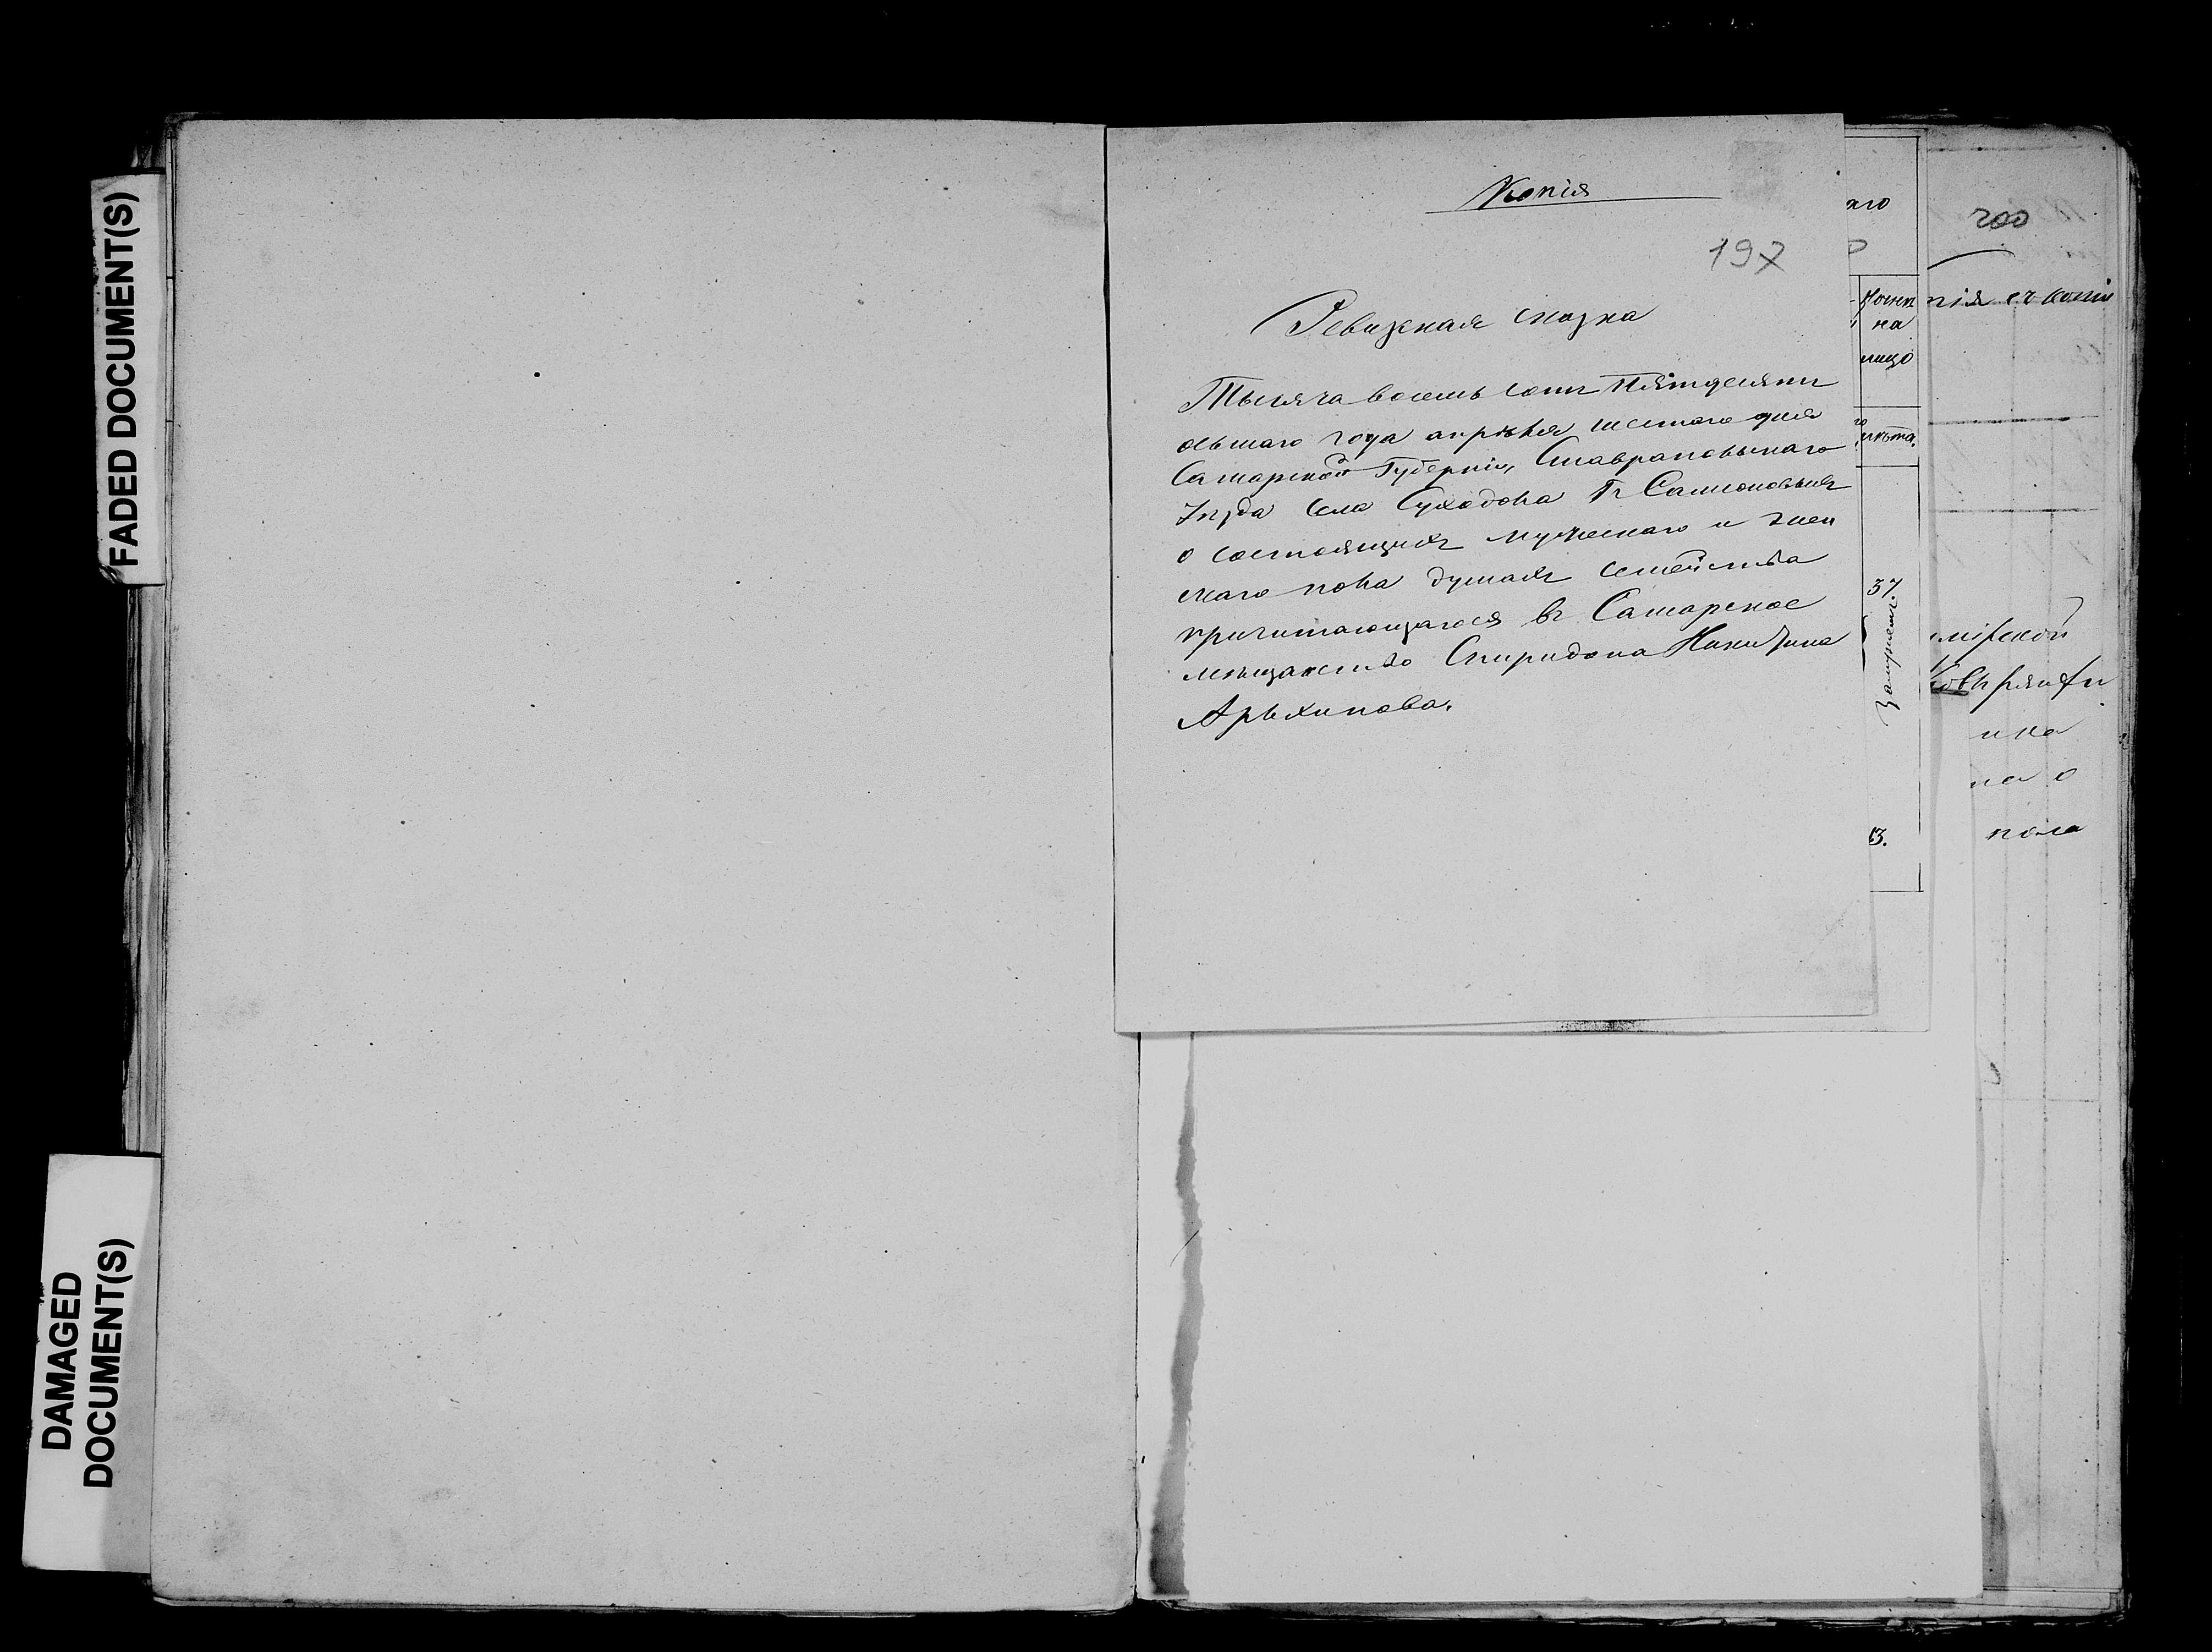 FADED DOCUMENT(S)
DAMAGED
DOCUMENT(S)
Копія
197
Ревизская сказка
Тысяча восемь сотъ Пятдесятъ
осьмаго года апрѣля шестаго дня
Самарской Губерніи, Ставрапольскаго
Уѣзда Села Суходола Гг
о состоящихъ мужескаго и жен
скаго пола душахъ семейства
причитающагося въ Самарское
мѣщанство Спиридона Никитина
Архипова.
аго
на
лицо
лѣта.
37.
13.
200
пія съ копіи
мірской
ина
на о
пола